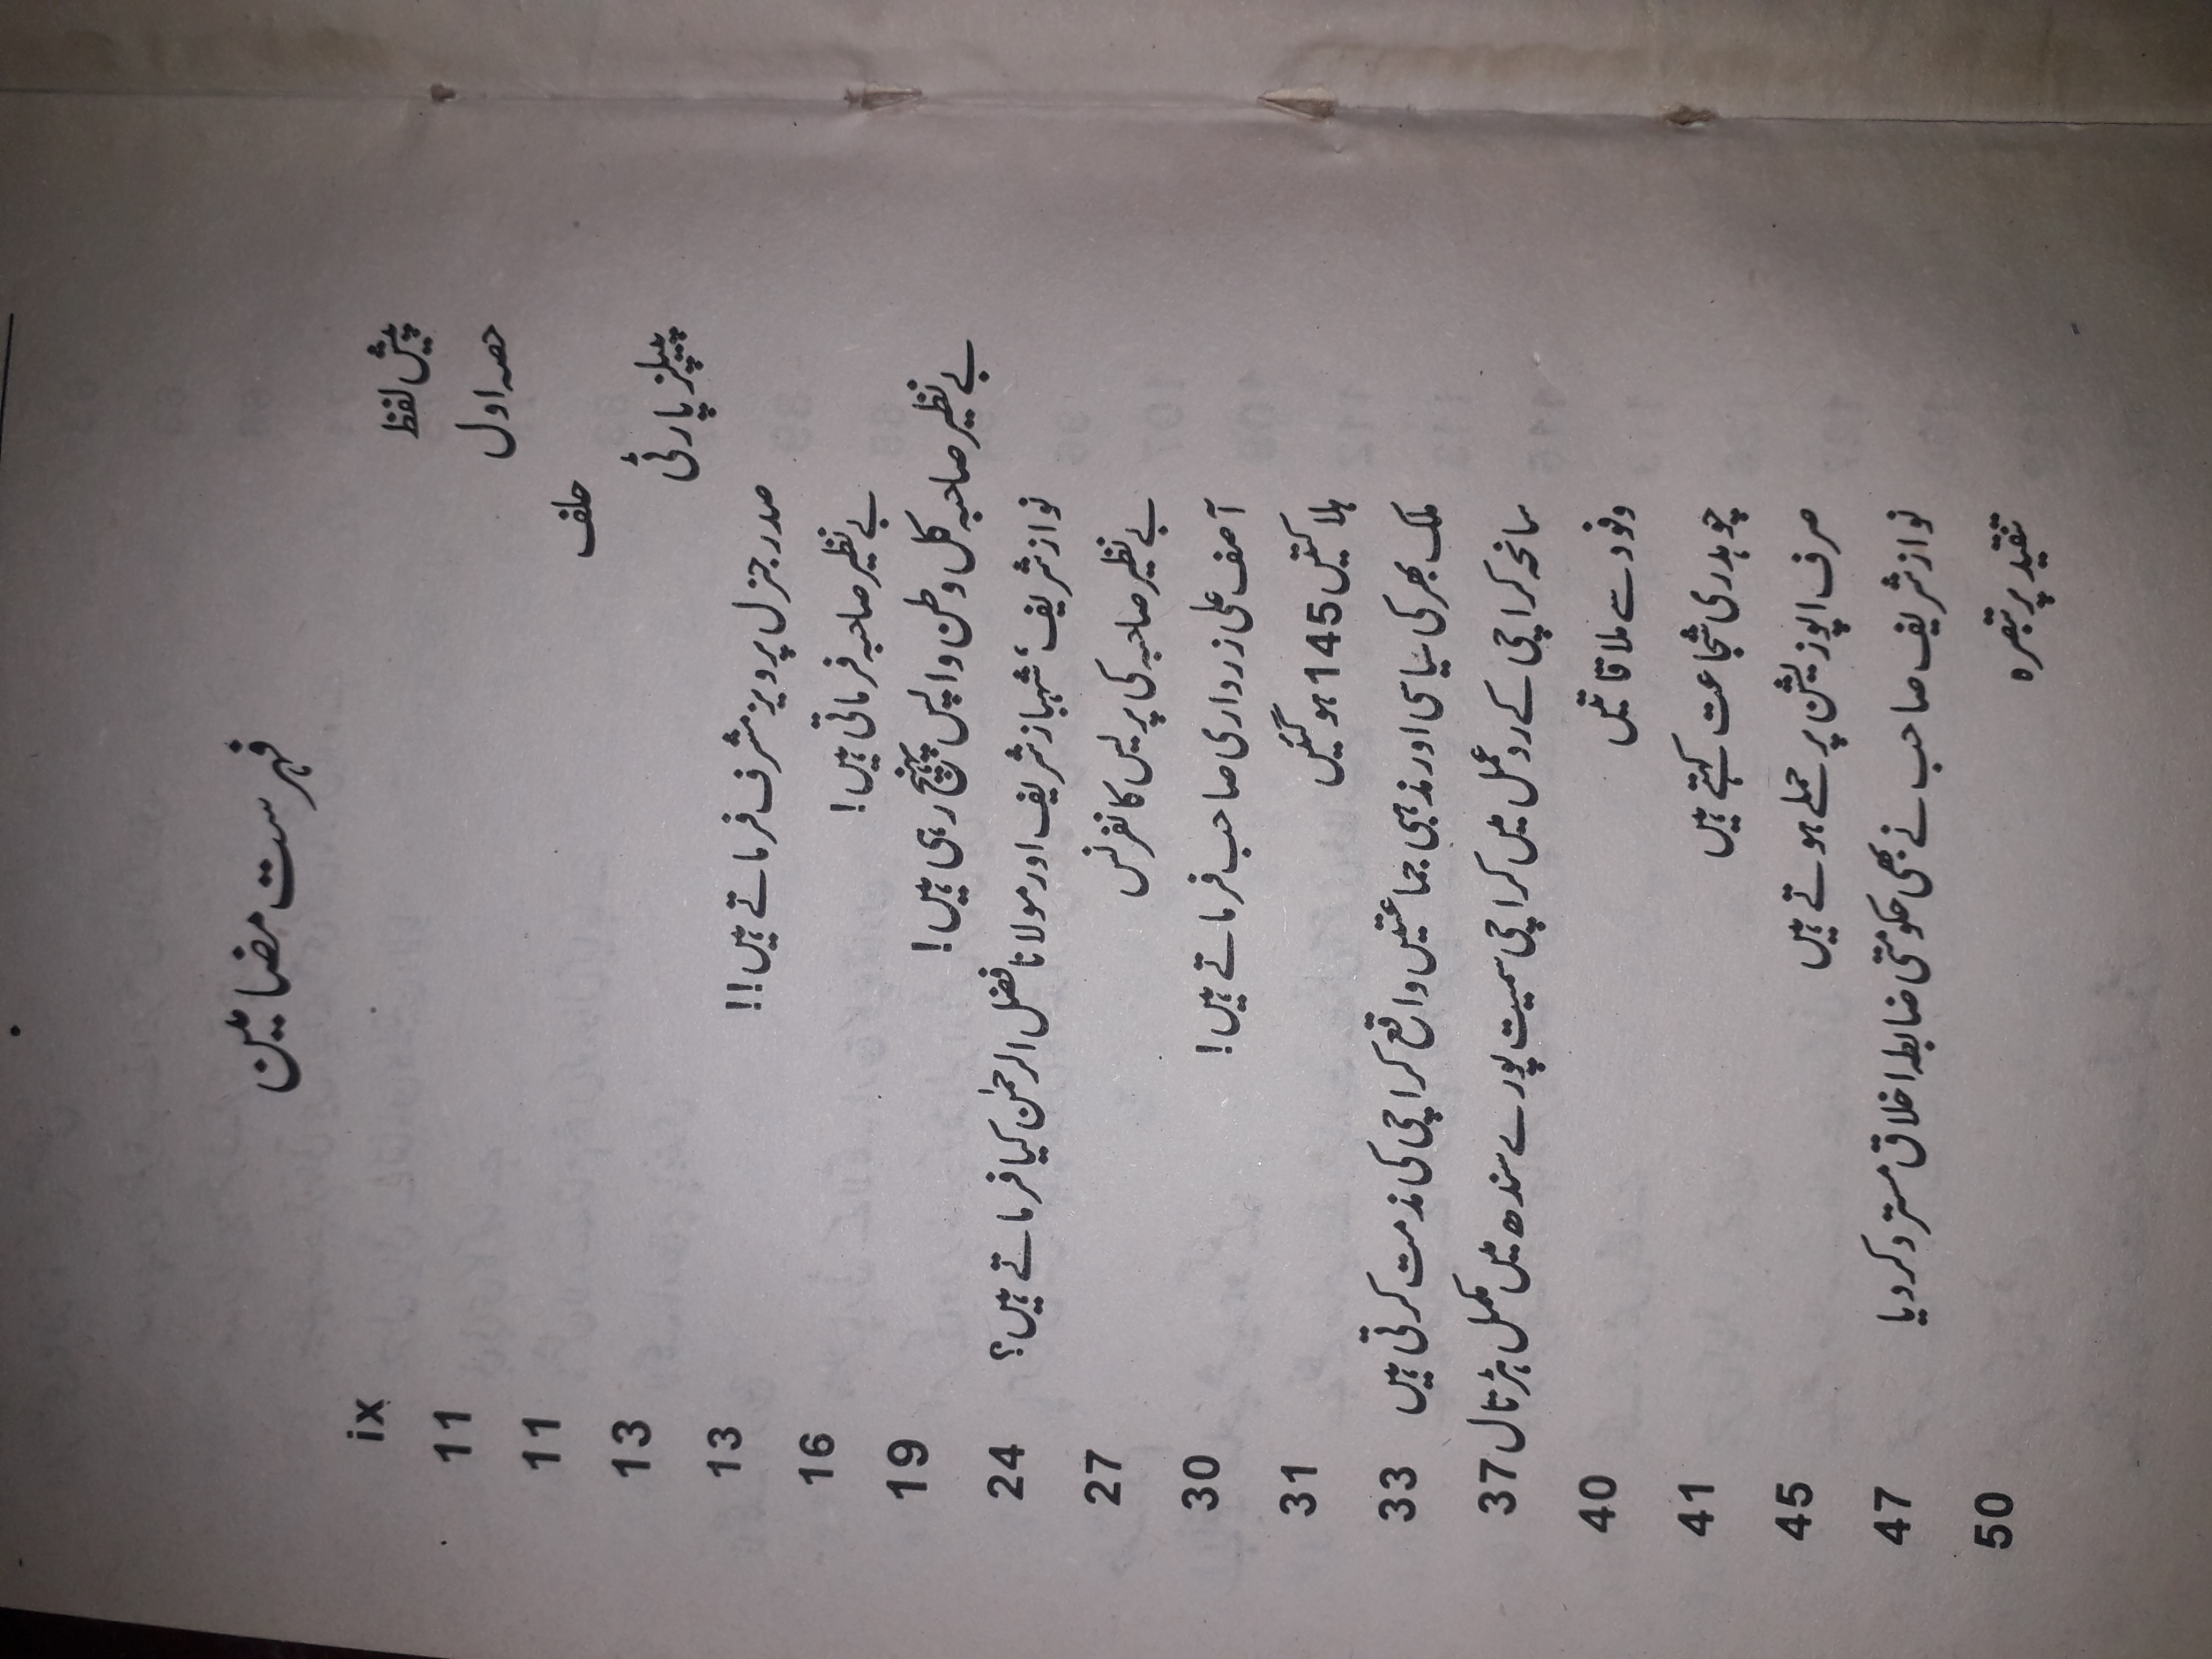 فہرست مضامین
پیش لفظ ix
حصہ اول 11
حلف 11
پیپلز پارٹی 13
صدر جنرل پرویز مشرف فرماتے ہیں!! 13
بے نظیر صاحبہ فرماتی ہیں! 16
بے نظیر صاحبہ کل وطن واپس پہنچ رہی ہیں! 19
نواز شریف، شہباز شریف اور مولانا فضل الرحمٰن کیا فرماتے ہیں؟ 24
بے نظیر صاحبہ کی پریس کانفرنس 27
آصف علی زرداری صاحب فرماتے ہیں! 30
ہلاکتیں 145 ہو گئیں 31
ملک بھر کی سیاسی اور مذہبی جماعتیں واقع کراچی کی مذمت کرتی ہیں 33
سانحہ کراچی کے ردِ عمل میں کراچی سمیت پورے سندھ میں مکمل ہڑتال 37
وفود سے ملاقاتیں 40
چوہدری شجاعت کہتے ہیں 41
صرف اپوزیشن پر حملے ہوتے ہیں 45
نواز شریف صاحب نے بھی حکومتی ضابطہ اخلاق مسترد کر دیا 47
تنقید پر تبصرہ 50